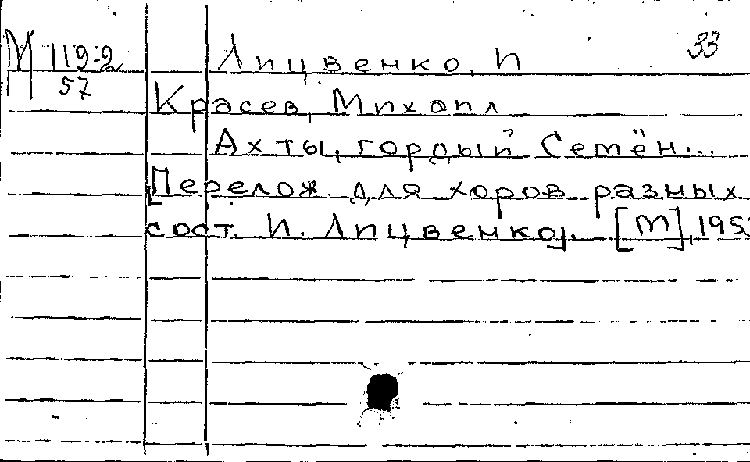 М 119:2 Лицвенко, И 33
57
Красев, Михаил
Ахты, гордый Семён...
[Перелож. для хоров разных
сост. И. Лицвенко]. [М], 195